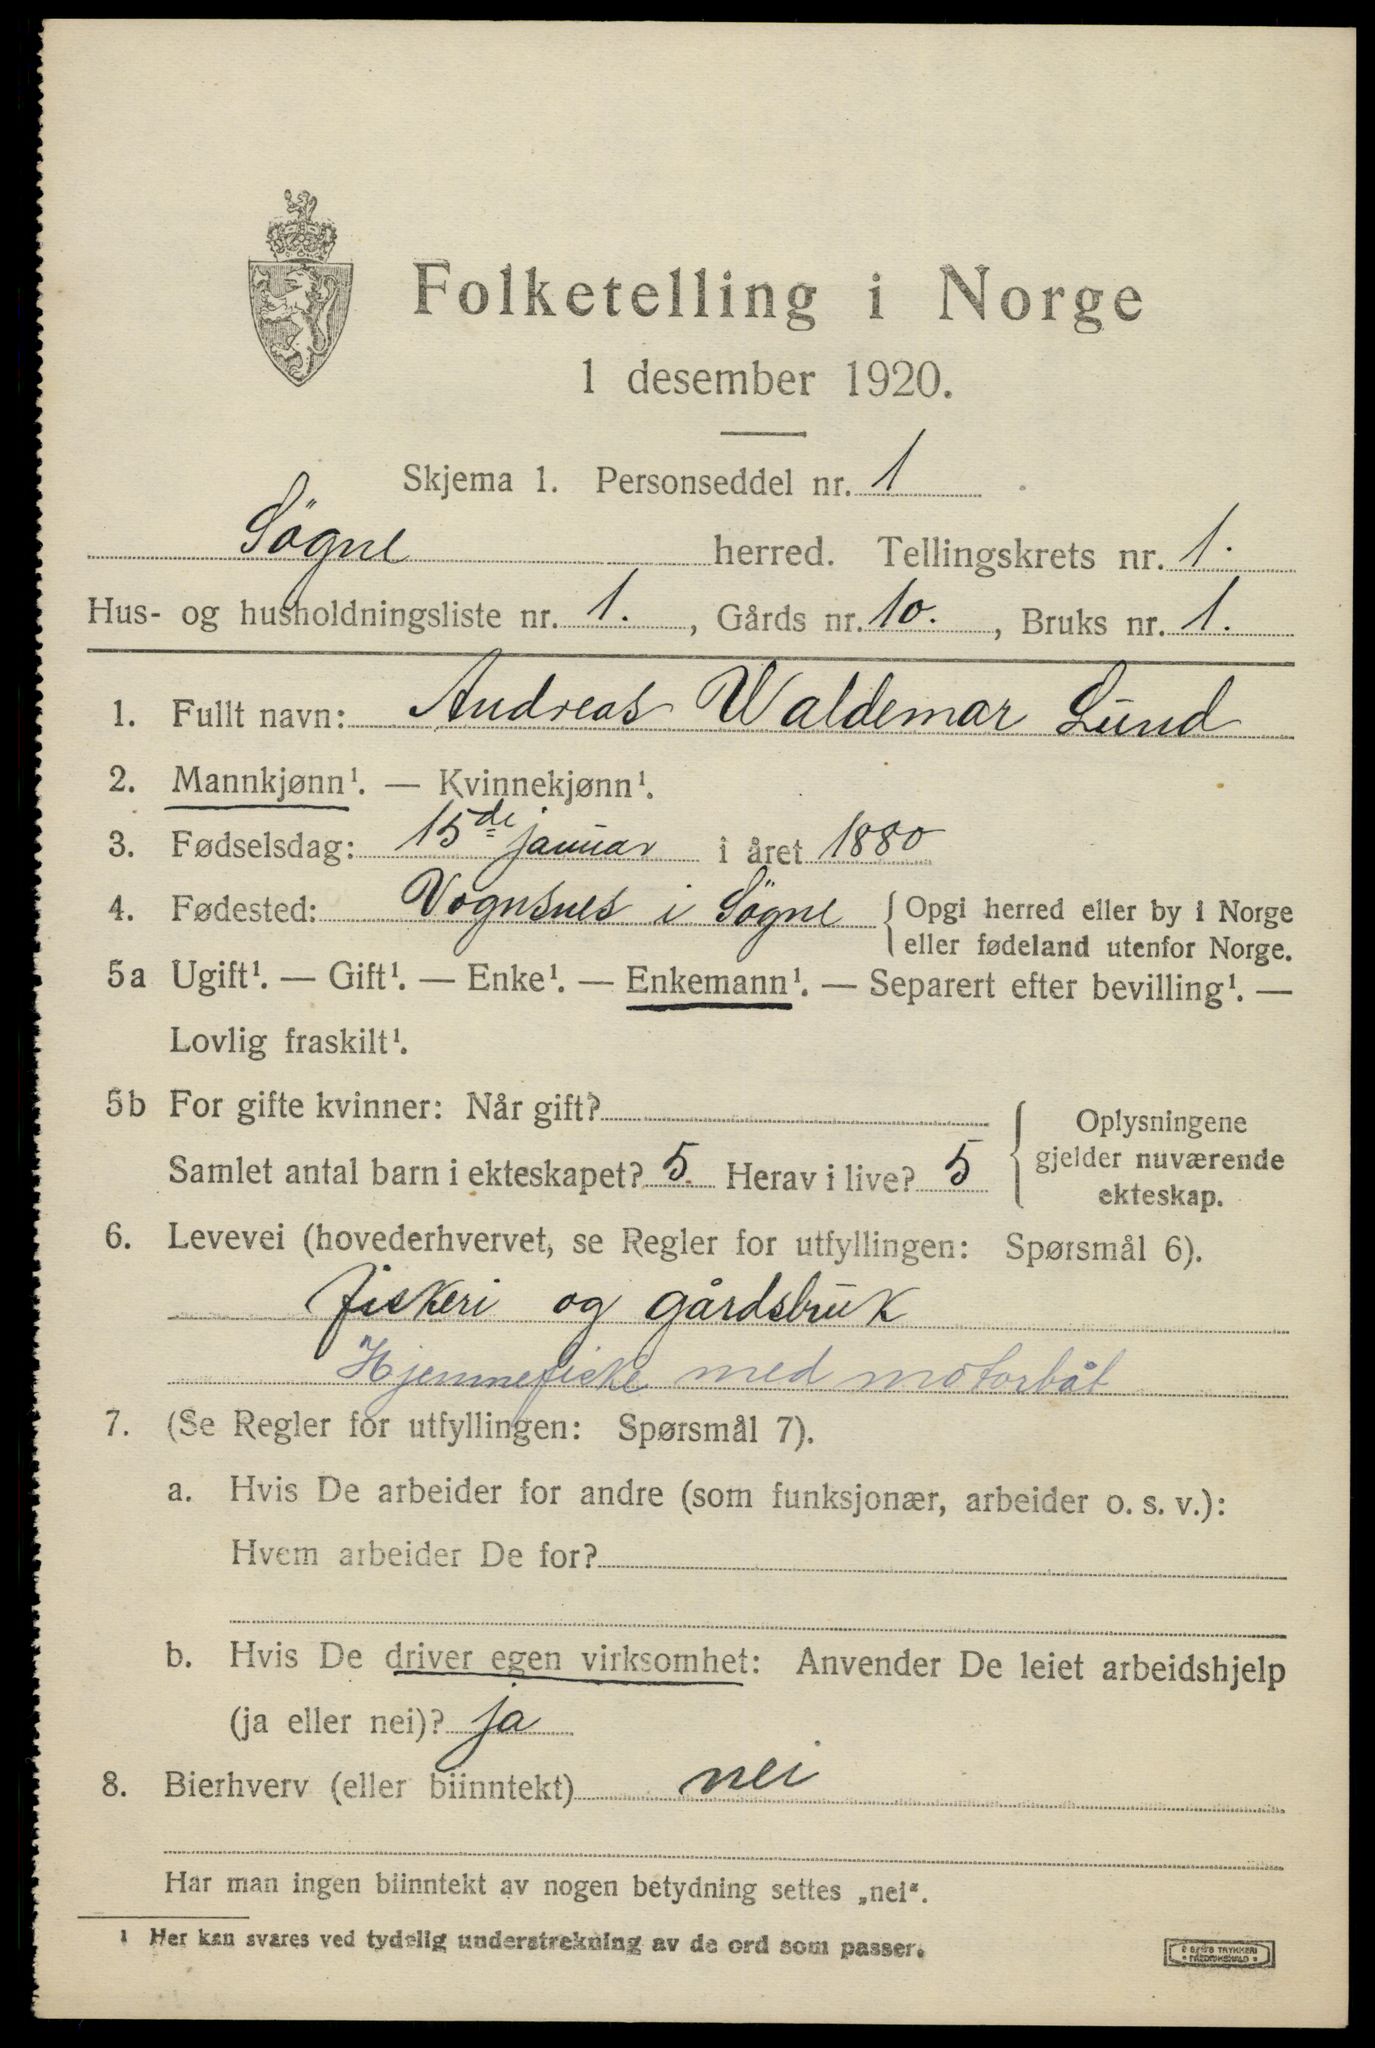 Folketelling i Norge
1 desember 1920.
Skjema 1. Personseddel nr. 1
Søgne herred. Tellingskrets nr. 1.
Hus- og husholdningsliste nr. 1. , Gårds nr. 10. , Bruks nr. 1.
1. Fullt navn: Andreas Waldemar Lund
2. Mannkjønn¹. — Kvinnekjønn¹.
3. Fødselsdag: 15de januar i året 1880
4. Fødested: Vognsnes i Søgne { Opgi herred eller by i Norge
eller fødeland utenfor Norge.
5a Ugift¹. — Gift¹. — Enke¹. — Enkemann¹. — Separert efter bevilling¹. —
Lovlig fraskilt¹.
5b For gifte kvinner: Når gift?
Samlet antal barn i ekteskapet? 5. Herav i live? 5
{ Oplysningene
gjelder nuværende
ekteskap.
6. Levevei (hovederhvervet, se Regler for utfyllingen: Spørsmål 6).
fiskeri og gårdsbruk
Hjemmefiske med motorbåt
7. (Se Regler for utfyllingen: Spørsmål 7).
a. Hvis De arbeider for andre (som funksjonær, arbeider o. s. v.):
Hvem arbeider De for?
b. Hvis De driver egen virksomhet: Anvender De leiet arbeidshjelp
(ja eller nei)? ja
8. Bierhverv (eller biinntekt) nei
Har man ingen biinntekt av nogen betydning settes „nei“.
1 Her kan svares ved tydelig understrekning av de ord som passer.
TRYKKERI
FREDRIKSHALD